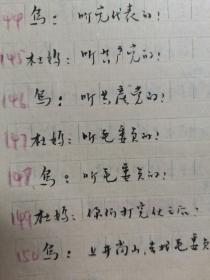 144 笃：听党代表的！
145 杜妈：听共产党的！
146 笃：听共产党的！
147 杜妈：听毛委员的！
148 笃：听毛委员的！
149 杜妈：你们打完仗之后？
150 笃：上井岗山，去找毛委员